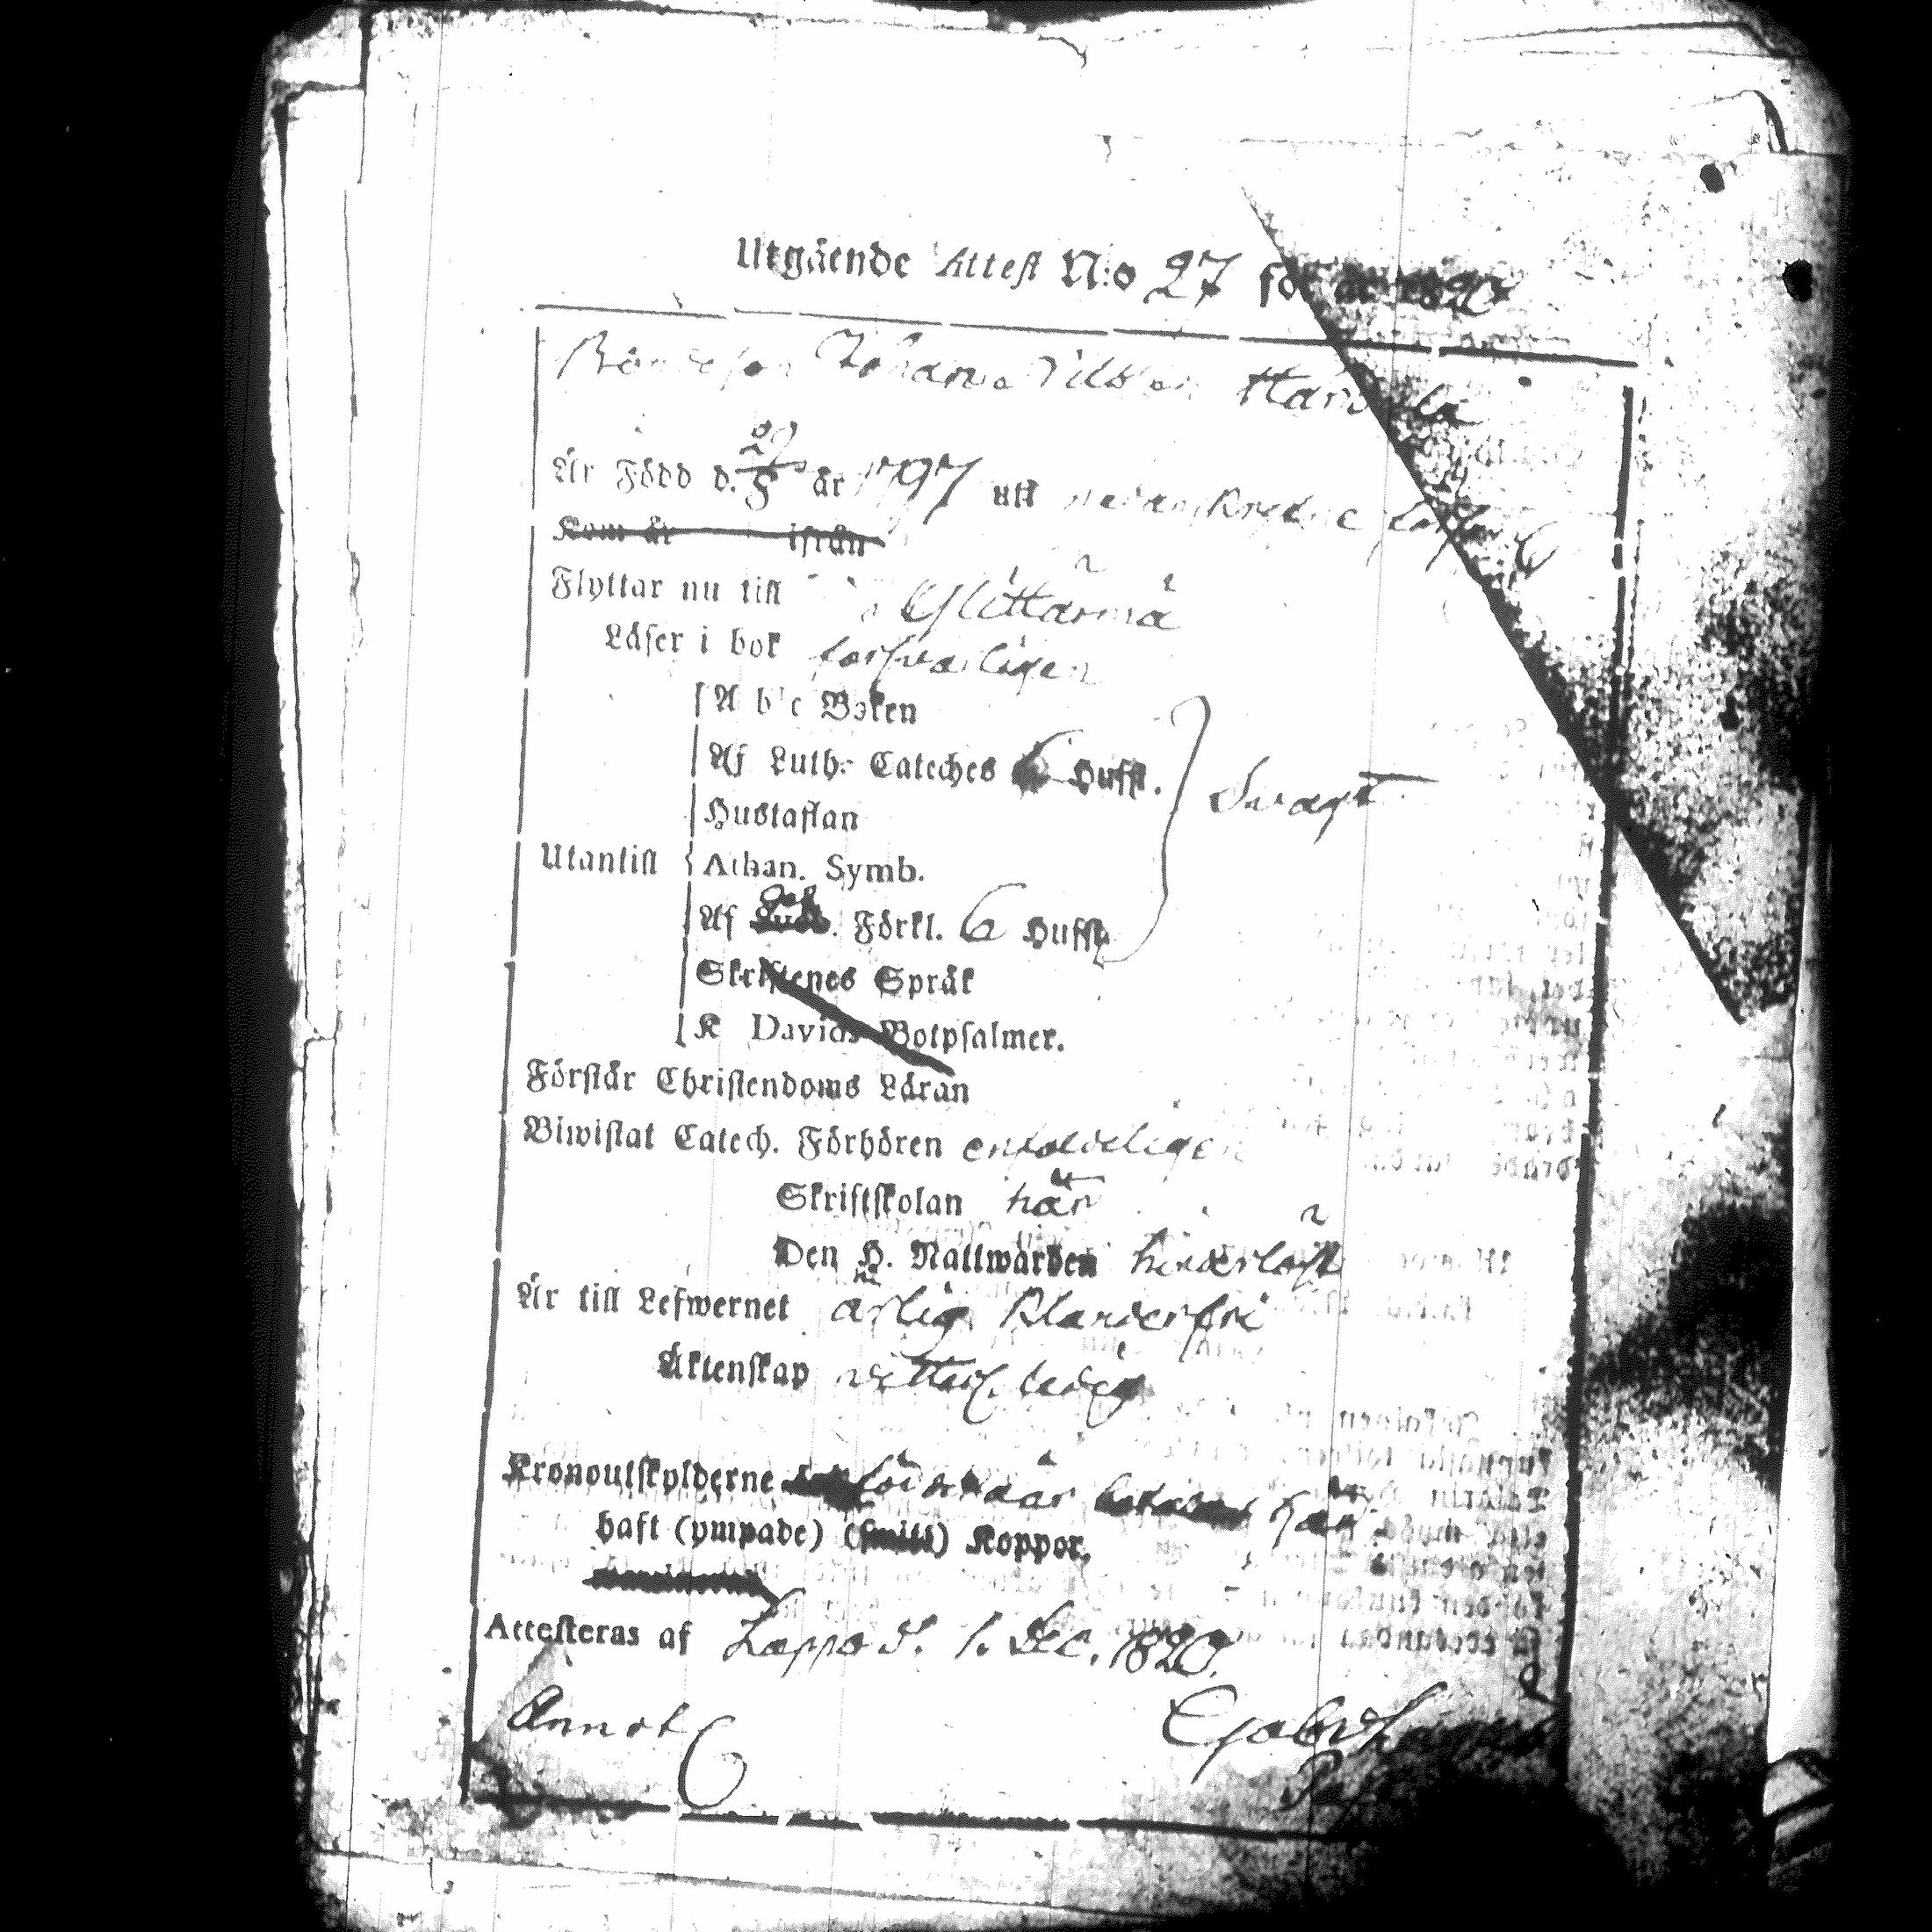 Utgående Attest N:o 27 för år 1820
Bondeson Johan Nilsson
Är Född d. 29/8 år 1797 utі
Kom år ifrån
Flyttar nu till Glittarnå
Läser i bok försvarligen
A b c Boken
Af Luth: Cateches 6 Hufst.
Hustaflan
Svagt
Utantill
Athan. Symb.
Af Förkl. 6 Hufst.
Skriftenes Språk
K Davids Botpsalmer.
Förstår Christendoms Läran
Biwistat Catech. Förhören enfaldeligen
Skriftskolan här
Den H. Nattwarden hinderlöst
Är till Lefwernet ärlig klanderfri
Äktenskap ledig
Kronoutskylderne här
haft (ympade) Koppor.
Attesteras af Lappo d. 1. Dec. 1820.
Annot